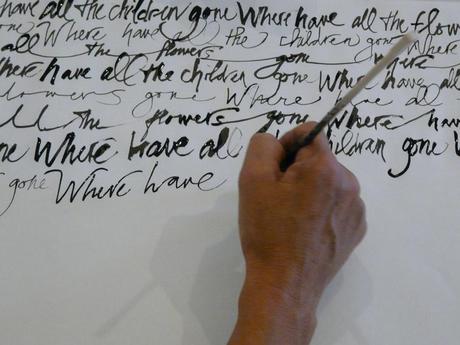 have all the children gone Where have all the flow
one Where have all the children gone Where
all the flowers gone where
here have all the children gone Where have all
lowers gone Where have all
ll the flowers gone Where have
ne Where have all children gone W
s gone Where have